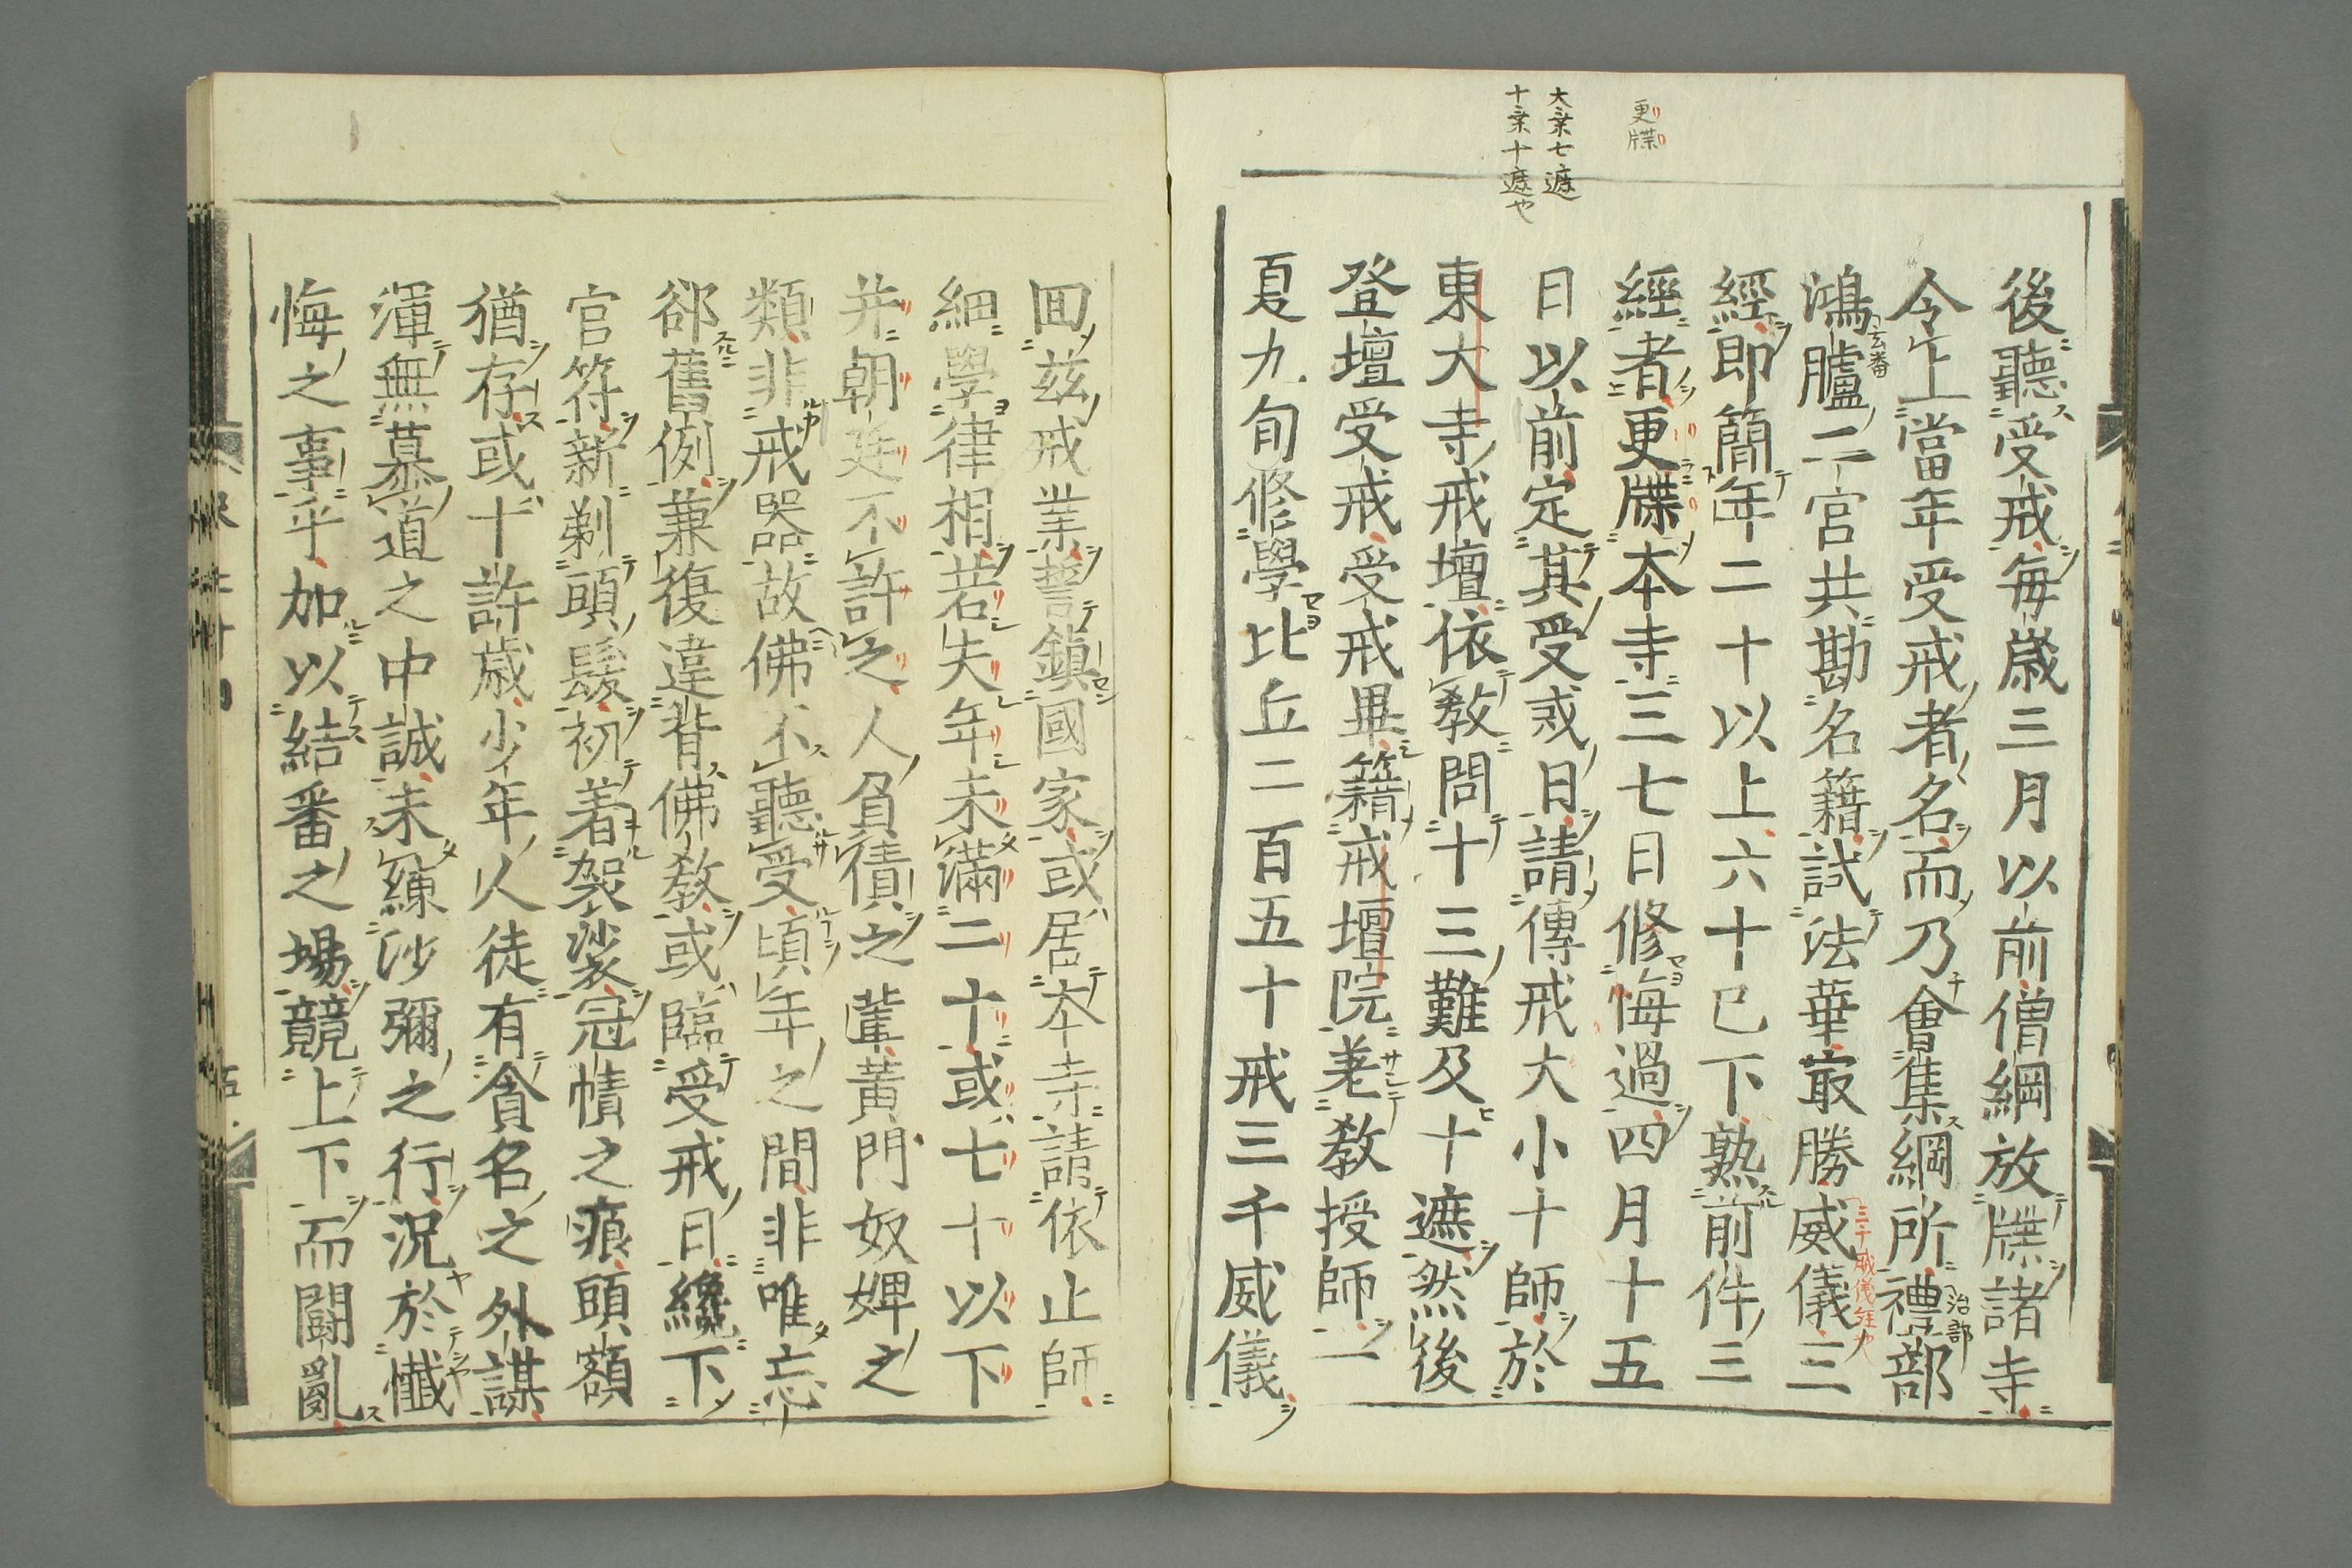 更牒
大業七遮
十業十遮也
後聽受戒毎歳三月以前僧綱放牒諸寺
令上當年受戒者名而乃會集綱所禮部
治部
鴻臚二官共勘名籍試法華最勝威儀三
玄番
經即簡年二十以上六十已下熟前件三
經者更牒本寺三七日修悔過四月十五
日以前定其受戒日請傳戒大小十師於
東大寺戒壇依教問十三難及十遮然後
登壇受戒受戒畢籍戒壇院差教授師一
夏九旬修學比丘二百五十戒三千威儀
囬兹戒業誓鎮國家或居本寺請依止師
細學律相若失年未滿二十或七十以下
并朝廷不許之人負債之輩黄門奴婢之
類非戒器故佛不聽受頃年之間非唯忘
郤舊例兼復違背佛教或臨受戒日纔下
官符新剃頭髮初着袈裟冠幘之痕頭額
猶存或十許歳少年人徒有貪名之外謀
渾無慕道之中誠未練沙彌之行況於懺
悔之事乎加以結番之場競上下而鬪亂